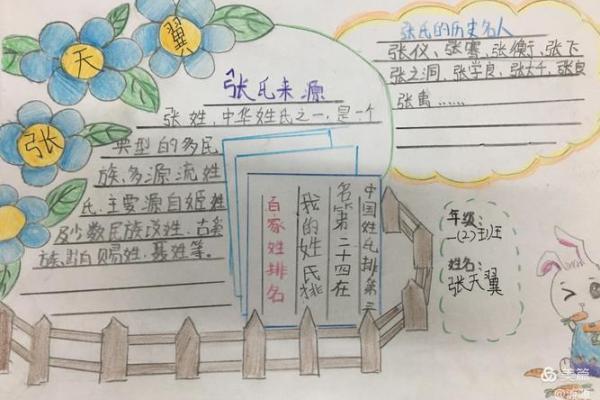 张
天
翼
张氏来源
张姓,中华姓氏之一,是一个
典型的多民
族、多源流姓
氏,主要源自姬姓
及少数民族改姓、古
族、出自赐姓、聂姓等。
百家姓排名
我的姓氏排
名第二十四在
中国姓氏排第三
张氏的历史名人
张仪、张骞、张衡、张飞
张之洞、张学良、张大千、张良
张禹……
年级:
一(2)班
姓名:
张天翼
美篇